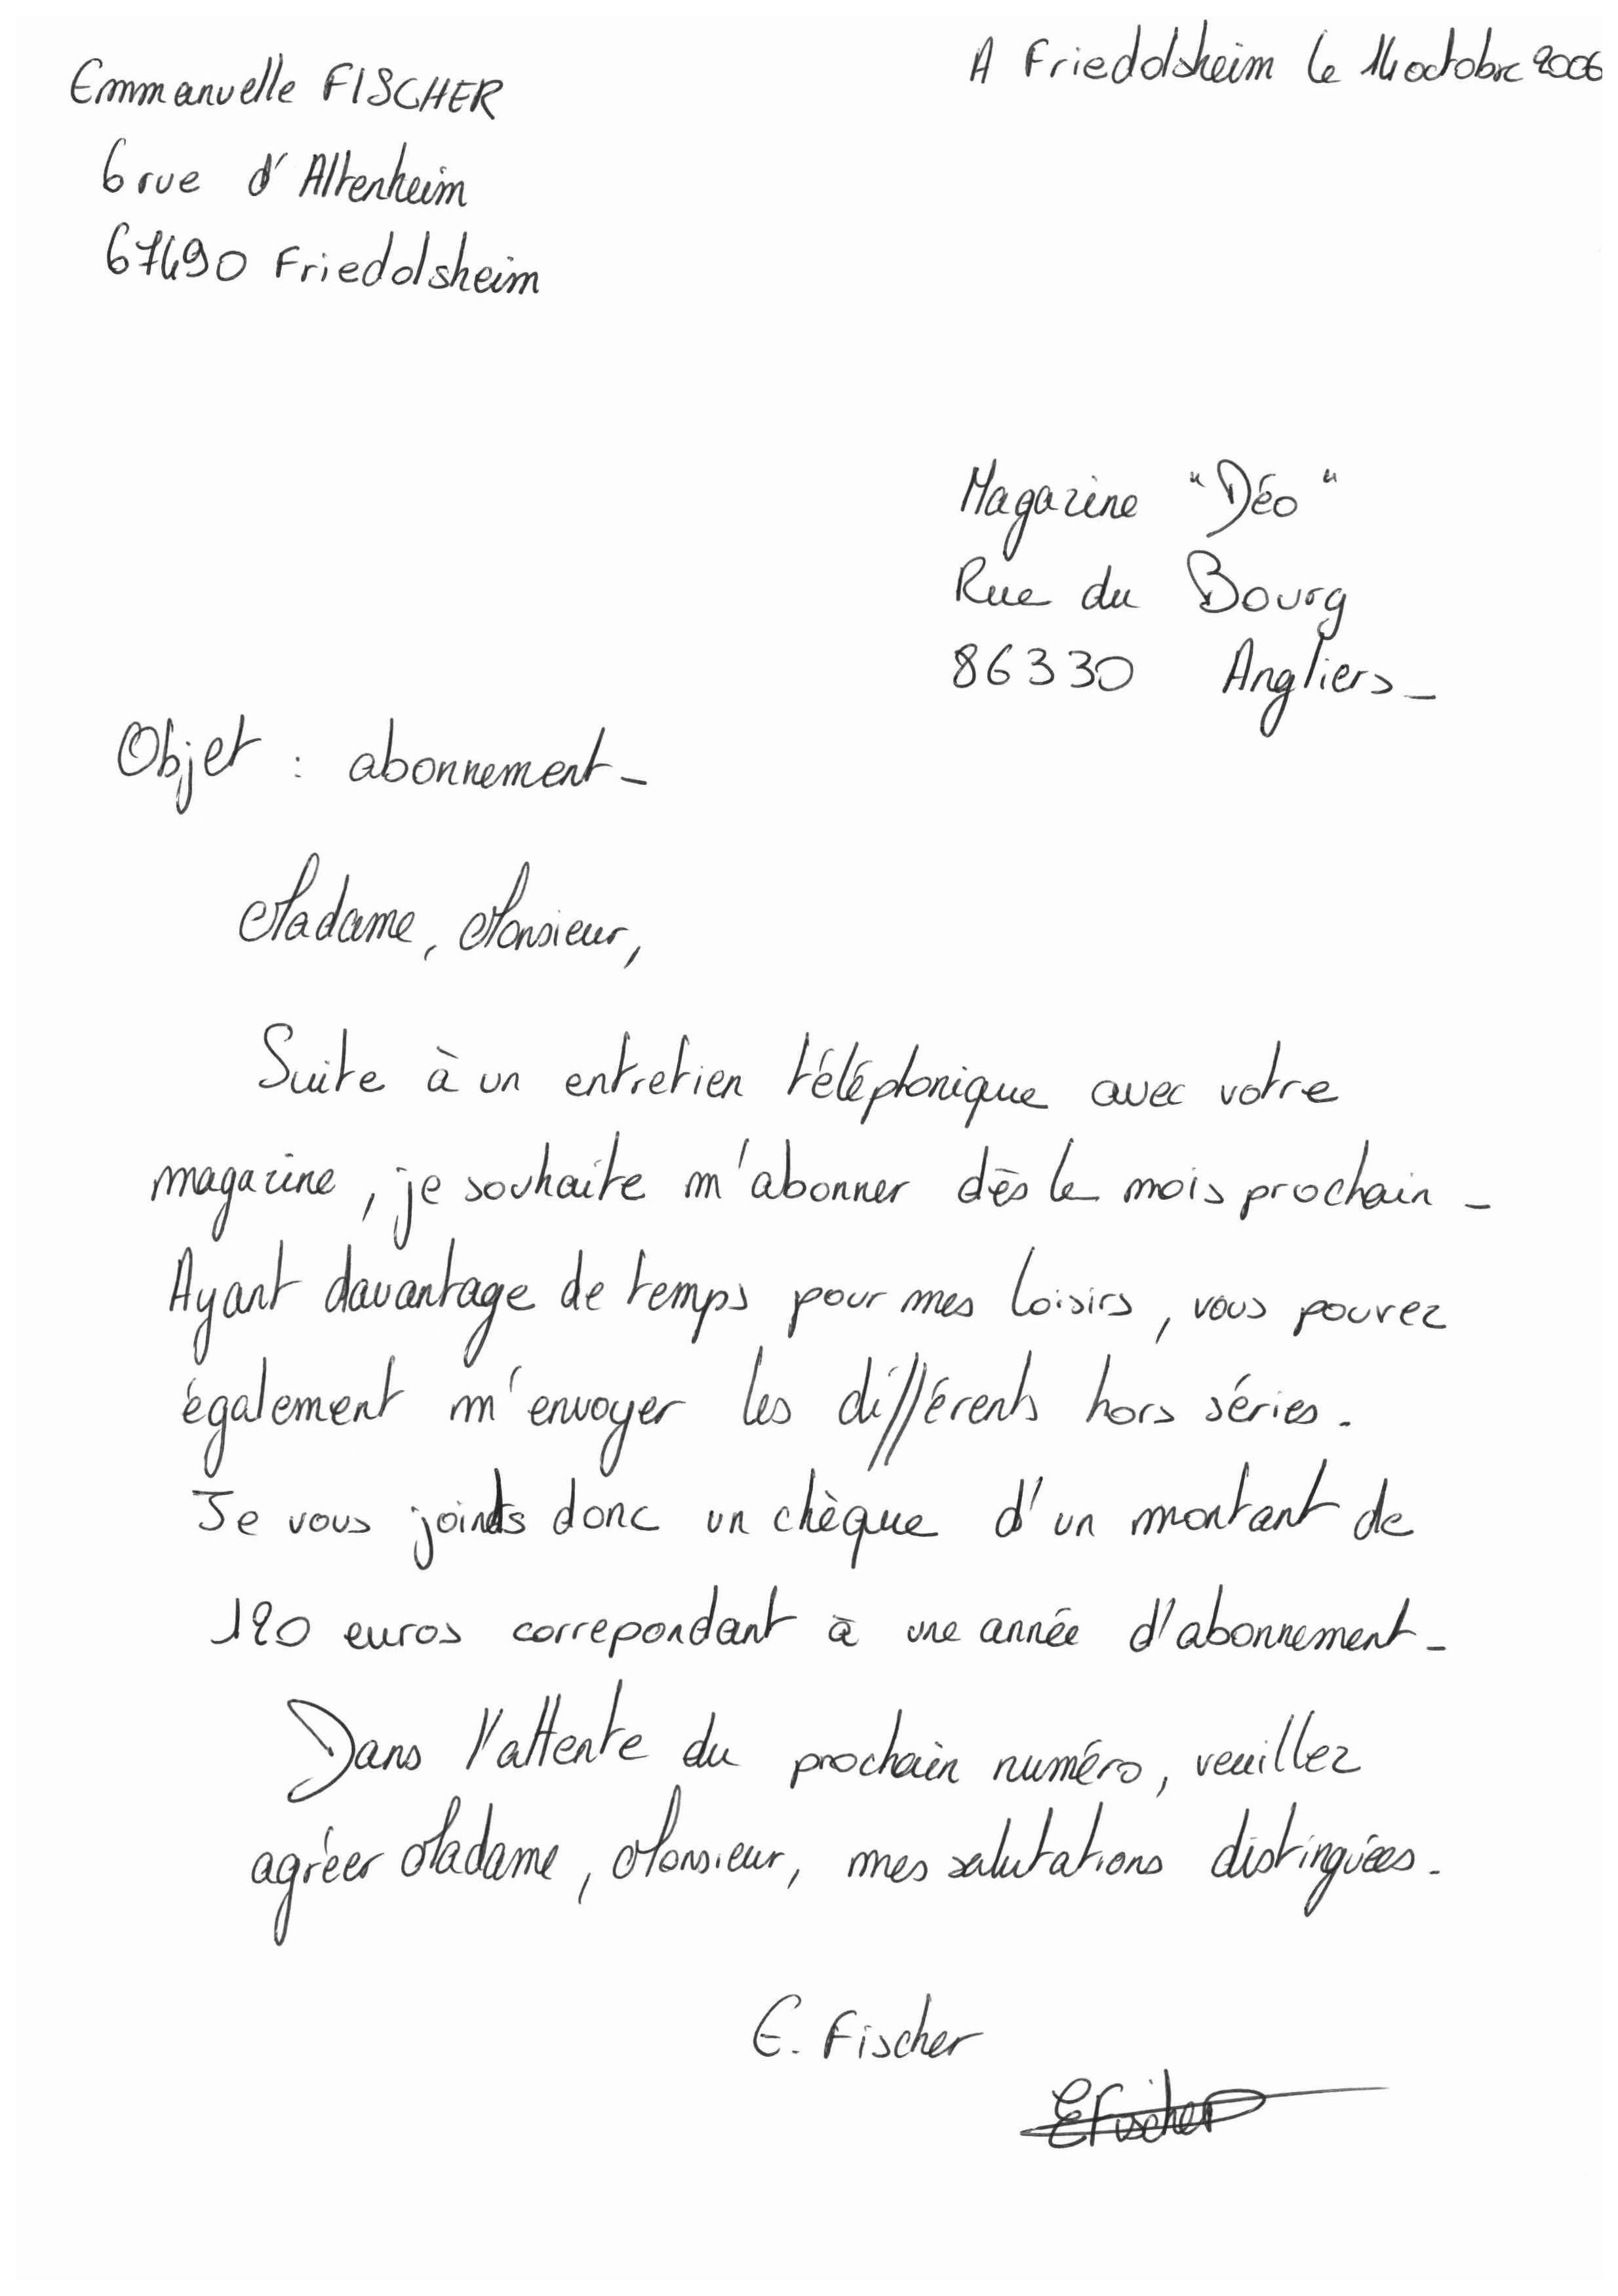 Emmanuelle FISCHER
A Friedolsheim le 14 octobre 2006
6 rue d'Altenheim
67490 Friedolsheim
Magazine "Déo"
Rue du Bourg
86330 Angliers_
Objet : abonnement_
Madame, Monsieur,
Suite à un entretien téléphonique avec votre
magazine, je souhaite m'abonner dès le mois prochain_
Ayant davantage de temps pour mes loisirs, vous pouvez
également m'envoyer les différents hors séries.
Je vous joinds donc un chèque d'un montant de
120 euros correpondant à une année d'abonnement_
Dans l'attente du prochain numéro, veuillez
agréer Madame, Monsieur, mes salutations distinguées.
E. Fischer
EFischer